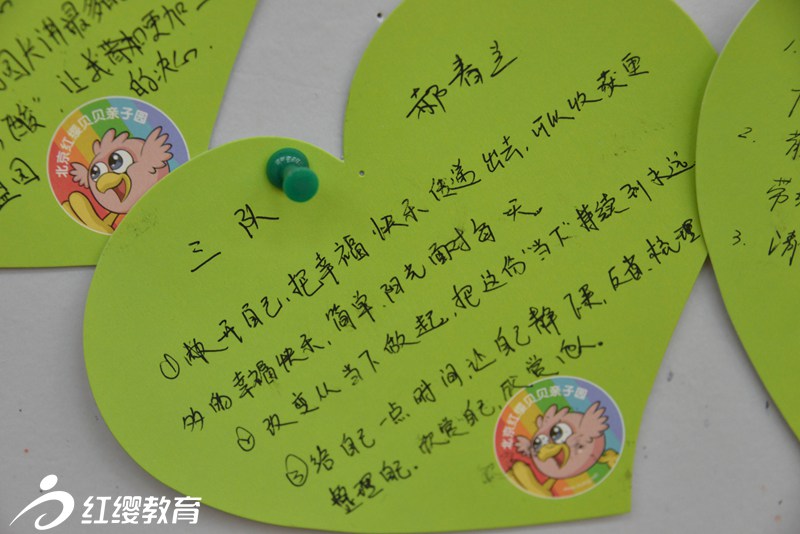 郝春兰
三队
①敞开自己,把幸福快乐传递出去,可以收获更
多的幸福快乐,简单、阳光面对每一天。
②改变从当下做起,把这份“当下”持续到永远
③给自己一点时间,让自己静下来,反省、梳理
整理自己,欣赏自己,欣赏他人。
北京红缨贝贝亲子园
园长讲最多的
酸”让我有更加
的决心
盟园
北京红缨贝贝亲子园
2.
劳
3.
红缨教育